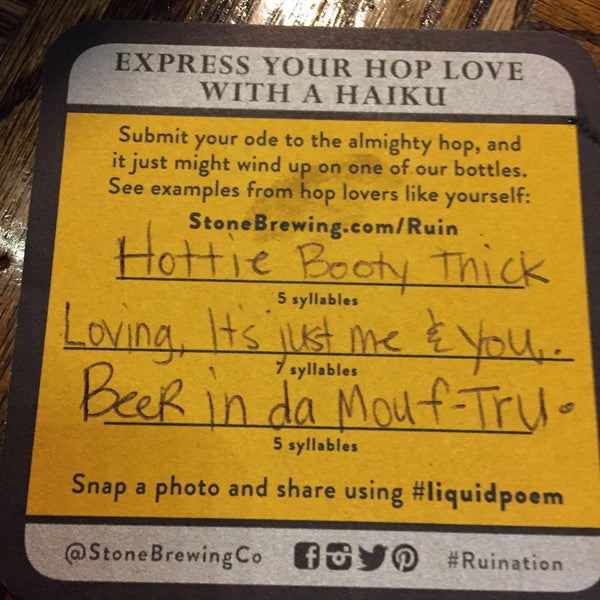 EXPRESS YOUR HOP LOVE
WITH A HAIKU
Submit your ode to the almighty hop, and
it just might wind up on one of our bottles.
See examples from hop lovers like yourself:
StoneBrewing.com/Ruin
Hottie Booty Thick
5 syllables
Loving, It's just me & you..
7 syllables
BeeR in da Mouf-Tru.
5 syllables
Snap a photo and share using #liquidpoem
@StoneBrewingCo #Ruination